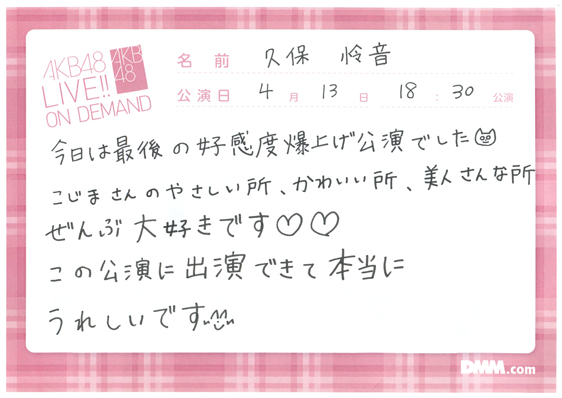 AKB48
LIVE!!
ON DEMAND
AKB
48
名前 久保 怜音
公演日 4月 13日 18:30 公演
今日は最後の好感度爆上げ公演でした
こじまさんのやさしい所、かわいい所、美人さんな所
ぜんぶ大好きです♡♡
この公演に出演できて本当に
うれしいです
DMM.com